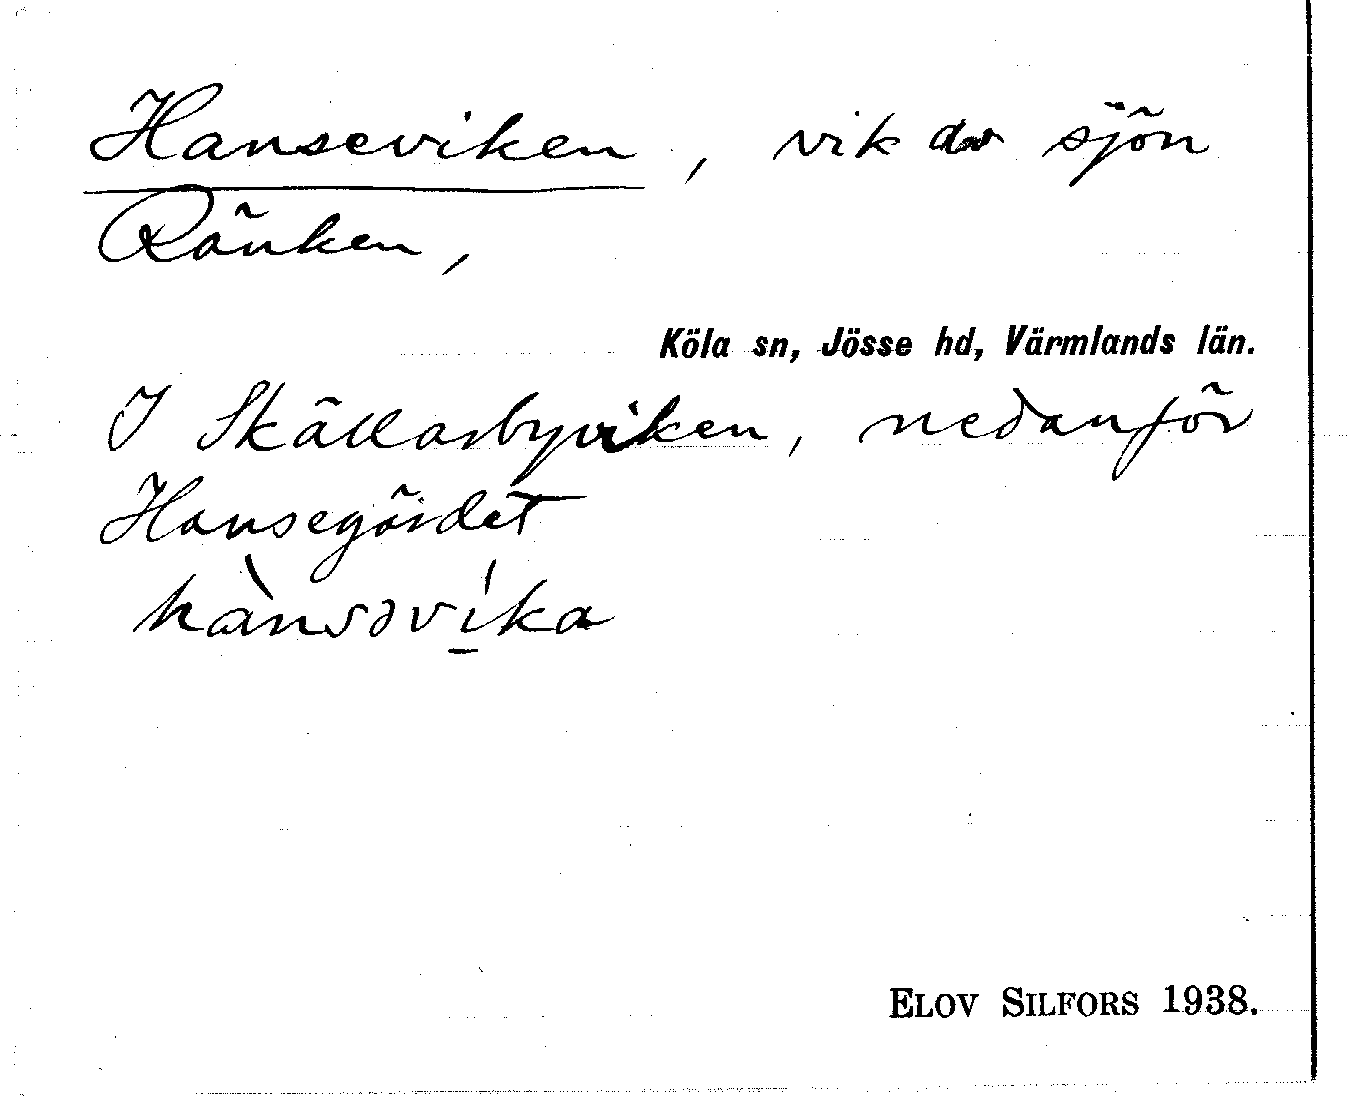 Hanseviken, vik av sjön
Ränken,
Köla sn, Jösse hd, Värmlands län.
I Skällarbyviken, nedanför
Hansegärdet
hànsəví̲ka
ELOV SILFORS 1938.